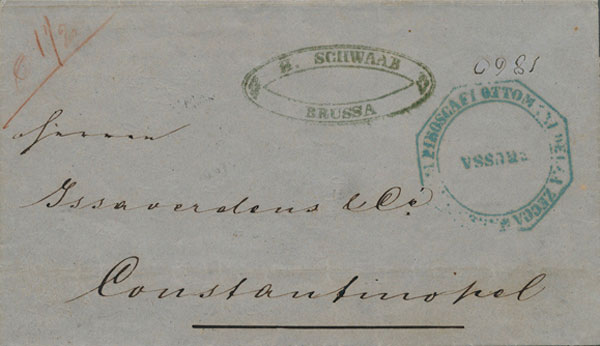 1 1/2
H. SCHWAAB
BRUSSA
1860
PIROSCAFI OTTOMANI DELLA ZECCA
BRUSSA
Herren
Issaverdens & Co
Constantinopel